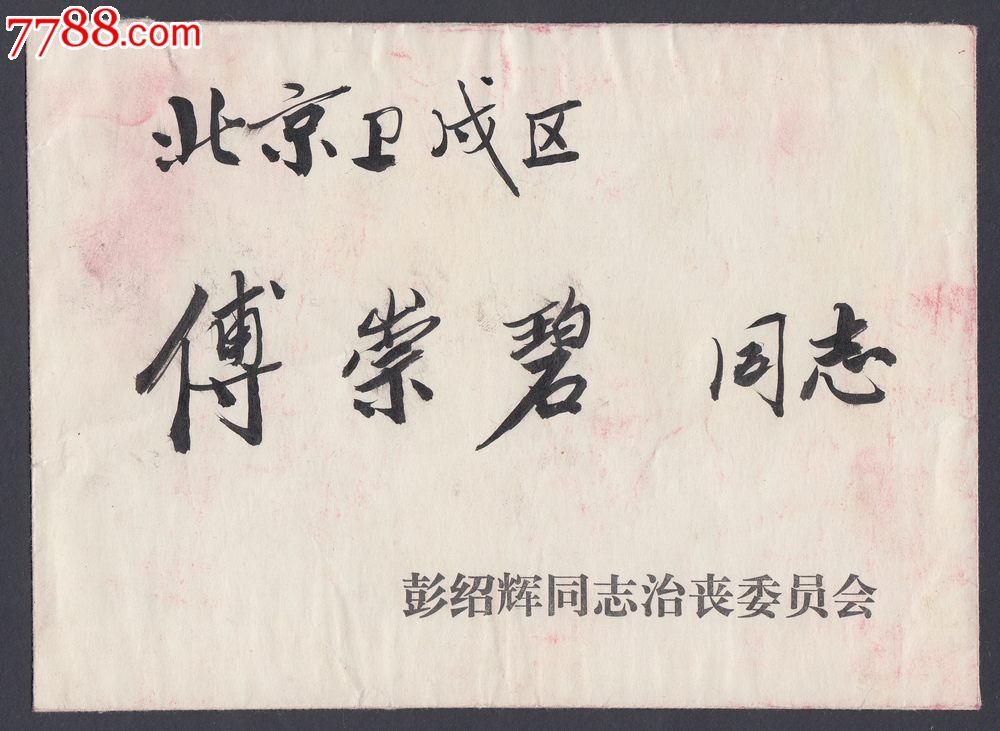 7788.com
北京卫戍区
傅崇碧 同志
彭绍辉同志治丧委员会